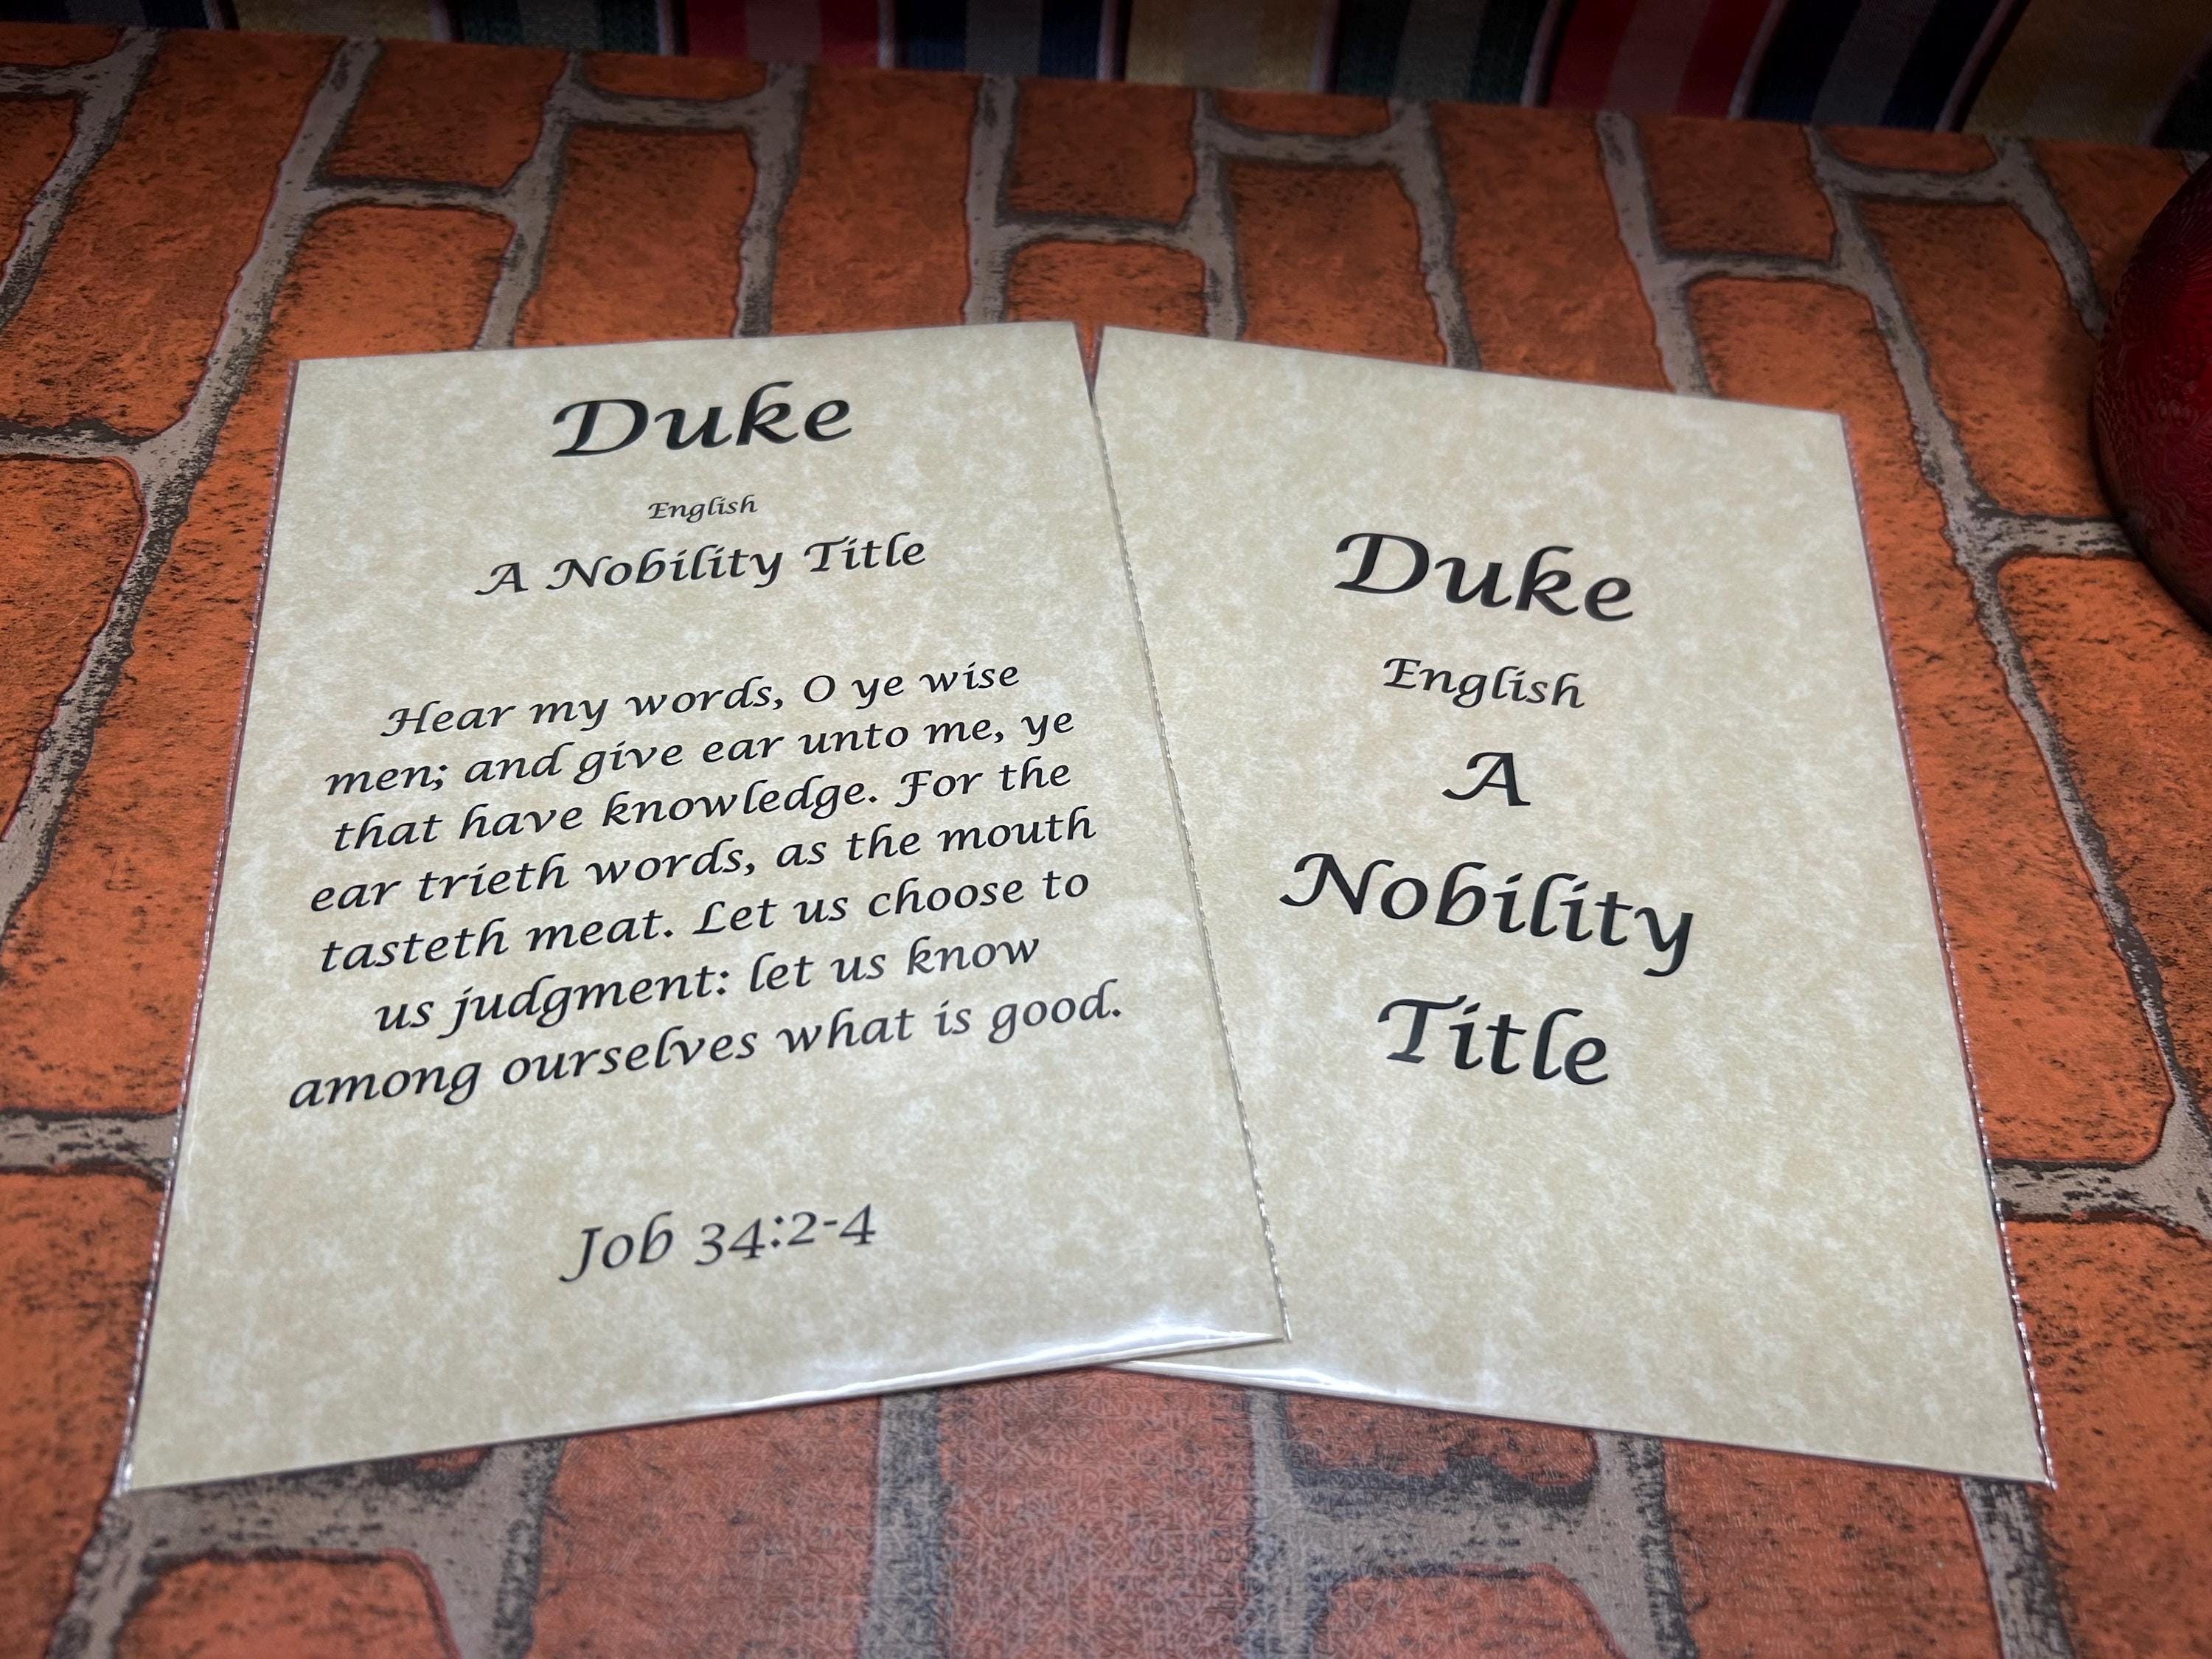 Duke
English
A Nobility Title
Hear my words, O ye wise
men; and give ear unto me, ye
that have knowledge. For the
ear trieth words, as the mouth
tasteth meat. Let us choose to
us judgment: let us know
among ourselves what is good.
Job 34:2-4
Duke
English
A
Nobility
Title